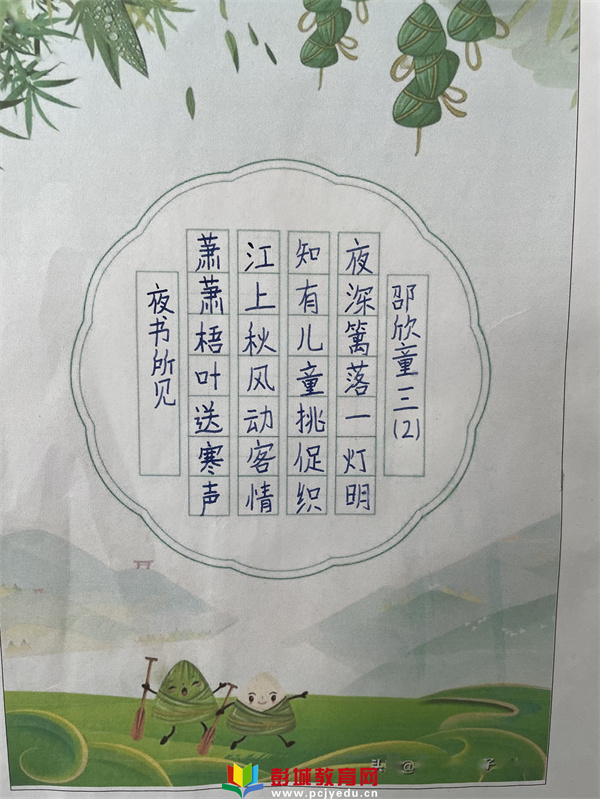 夜书所见
萧萧梧叶送寒声
江上秋风动客情
知有儿童挑促织
夜深篱落一灯明
邵欣童三(2)
头@
子
彭城教育网
www.pcjyedu.cn